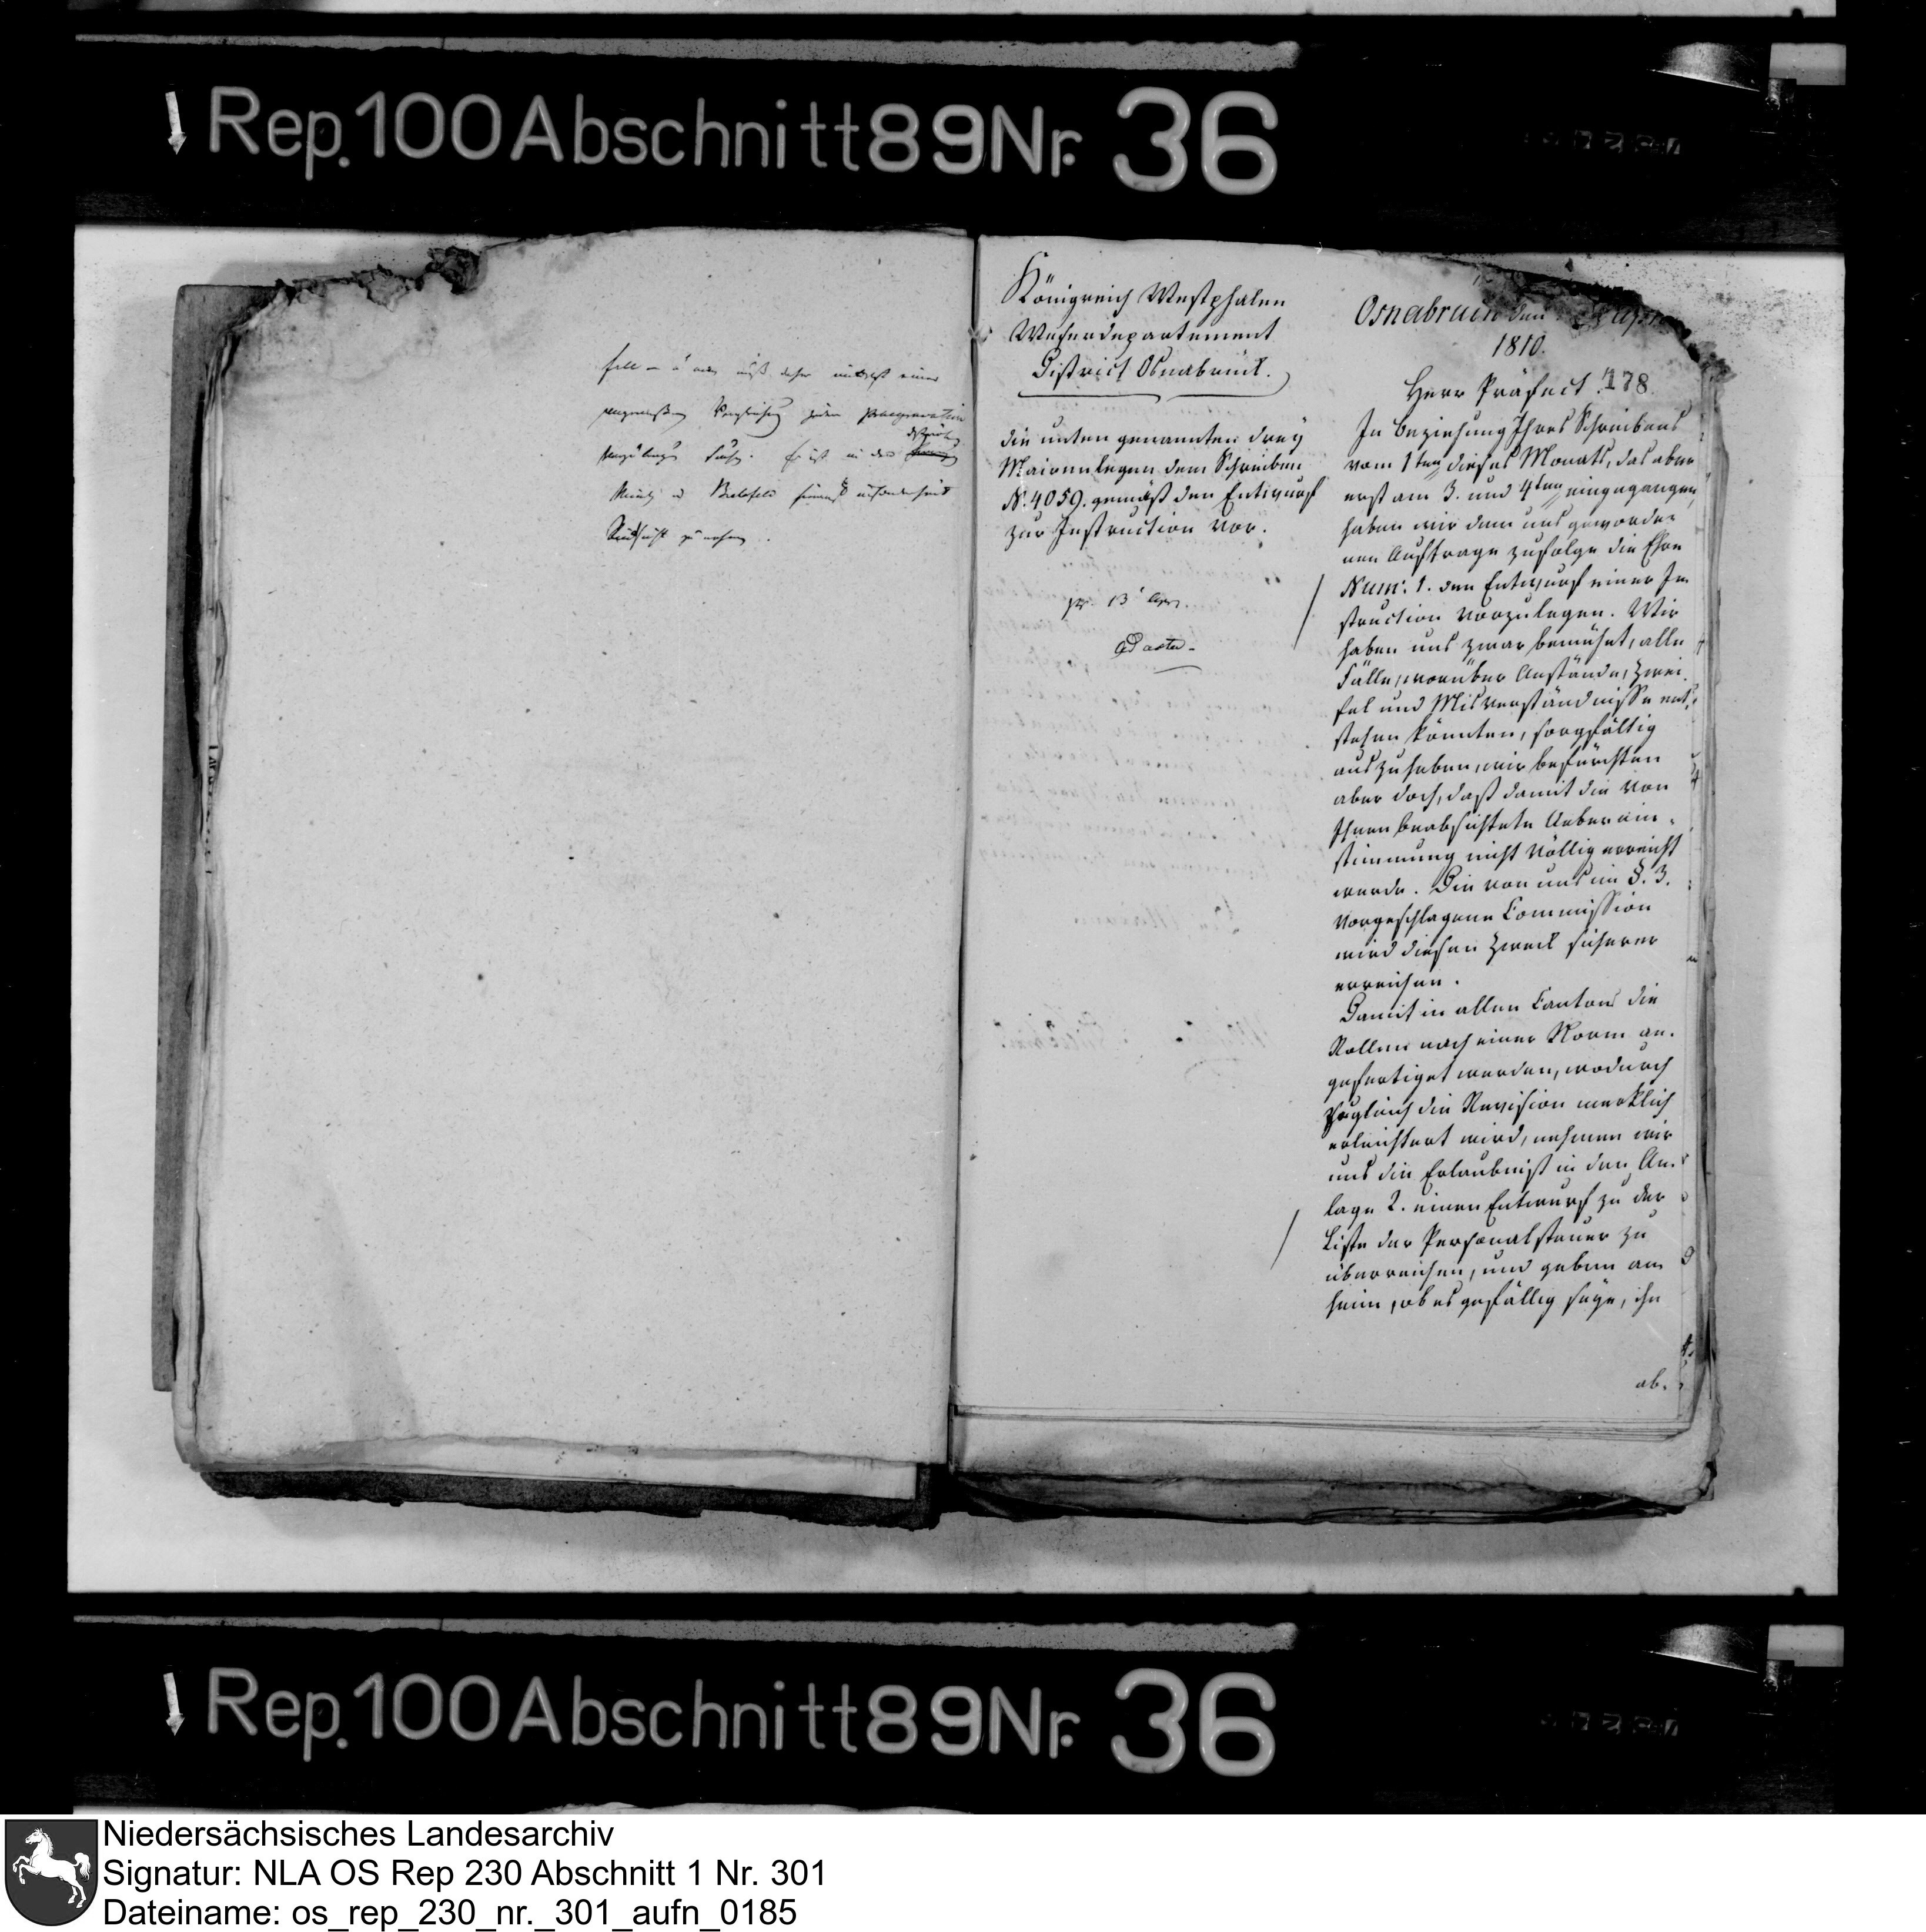 Rep. 100 Abschnitt 89 Nr. 36
daher mittelst einer
Praegravation
Er ist in den
Bielefeld
Rücksicht zu nehmen.
Königreich Westphalen
Weserdepartement
District Osnabrück.
die unten genannten drey
Mairen legen dem Schreiben
N. 4059. gemäß den Entwurf
zur Instruction vor.
pr. 13 Apr.
ad acta.
Osnabrück den
1810.
178.
Herr Präfect!
In Beziehung Ihres Schreibens
vom 1ten dieses Monats, das aber
erst am 3. und 4ten eingegangen,
haben wir dem uns geworde-
nen Auftrage zufolge die Ehre
Num: 1. den Entwurf einer In-
struction vorzulegen. Wir
haben uns zwar bemühet, alle
Fälle, worüber Anstände, Zwei-
fel und Misverständnisse ent-
stehen könnten, sorgfältig
auszuheben, wir befürchten
aber doch, daß damit die von
Ihnen beabsichtete Ueberein-
stimmung nicht völlig erreicht
werde. Die von uns im §. 3.
vorgeschlagene Commission
wird diesen Zweck sicherer
erreichen.
Damit in allen Cantons die
Rollen nach einer Norm an-
gefertiget werden, wodurch
zugleich die Revision merklich
erleichtert wird, nehmen wir
uns die Erlaubniß in der An-
lage 2. einen Entwurf zu der
Liste der Personalsteuer zu
überreichen, und geben an-
heim, ob es gefällig seye, ihn
ab-
Rep. 100 Abschnitt 89 Nr. 36
Niedersächsisches Landesarchiv
Signatur: NLA OS Rep 230 Abschnitt 1 Nr. 301
Dateiname: os_rep_230_nr._301_aufn_0185